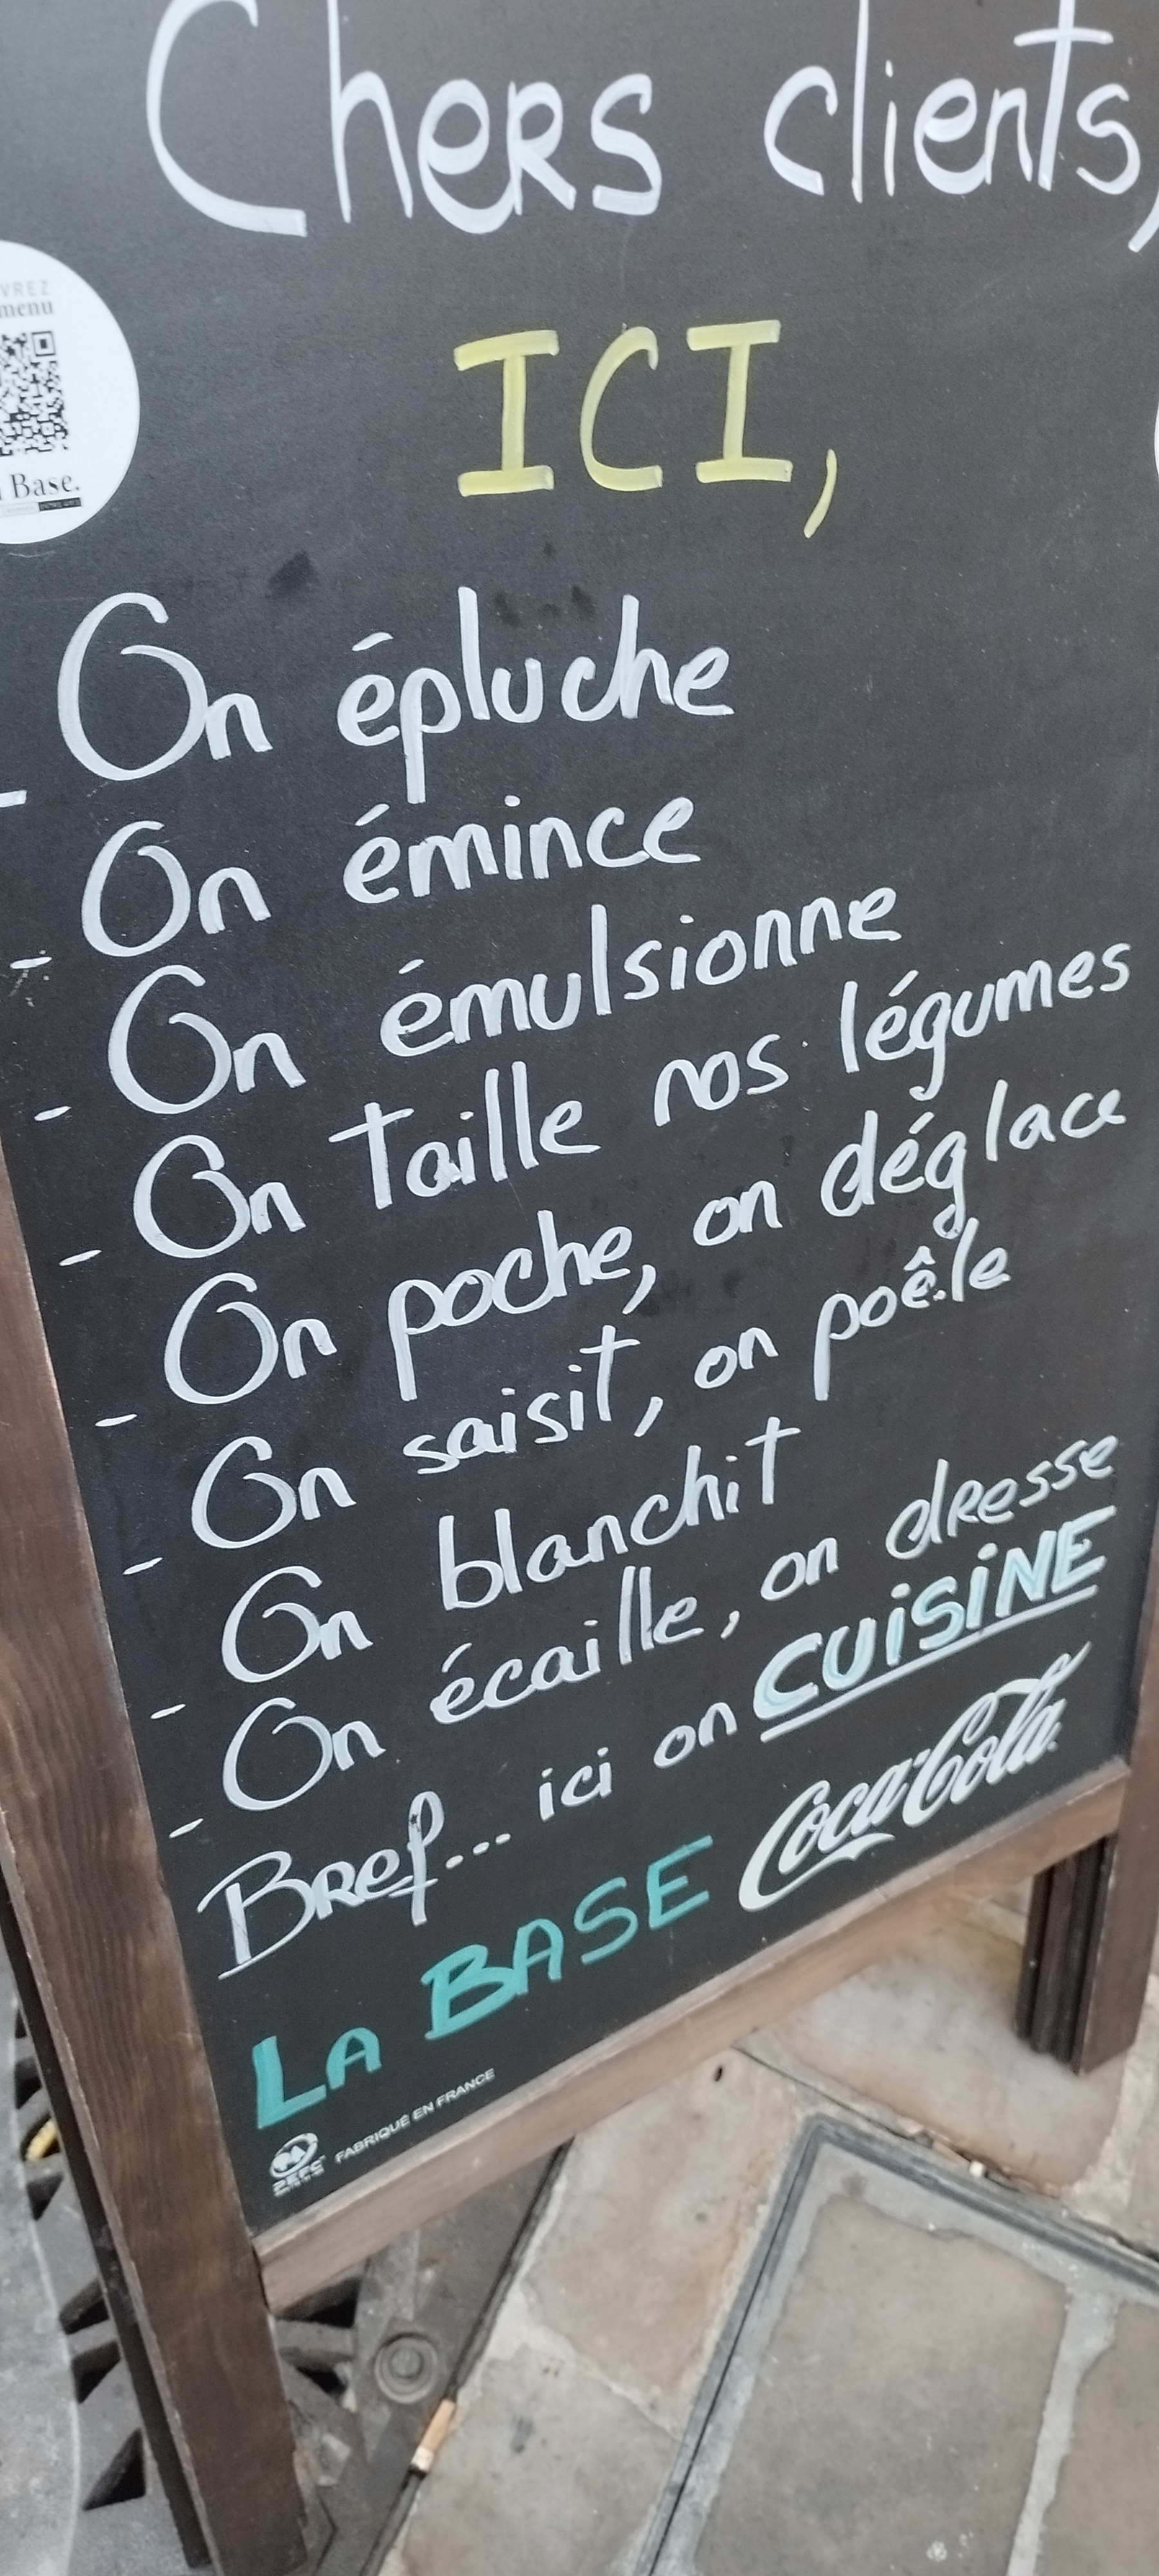 Chers clients,
VREZ
menu
Base.
ICI,
- On épluche
- On émince
- On émulsionne
- On taille nos légumes
- On poche, on déglace
- On saisit, on poêle
- On blanchit
- On écaille, on dresse
Bref... ici on CUISINE
LA BASE Coca-Cola
FABRIQUÉ EN FRANCE